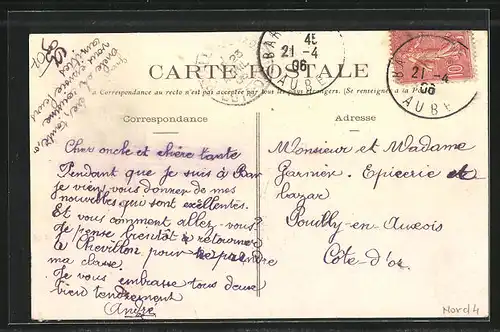 CARTE POSTALE
La Correspondance au recto n'est pas acceptée par tous les pays étrangers. (Se renseigner à la Poste)
Correspondance
Cher oncle et chère tante
Pendant que je suis à Bar
je viens vous donner de mes
nouvelles qui sont exellentes.
Et vous comment allez-vous?
Je pense bientôt retourner
à Chevillon pour reprendre
ma classe.
Je vous embrasse tous deux
bien tendrement
André
Adresse
Monsieur et Madame
Garnier. Epicerie et
bazar
Pouilly-en-Auxois
Côte-d'or
BAR
45
21 -4
06
AUBE
BAR
21 -4
06
AUBE
10
Nord/4